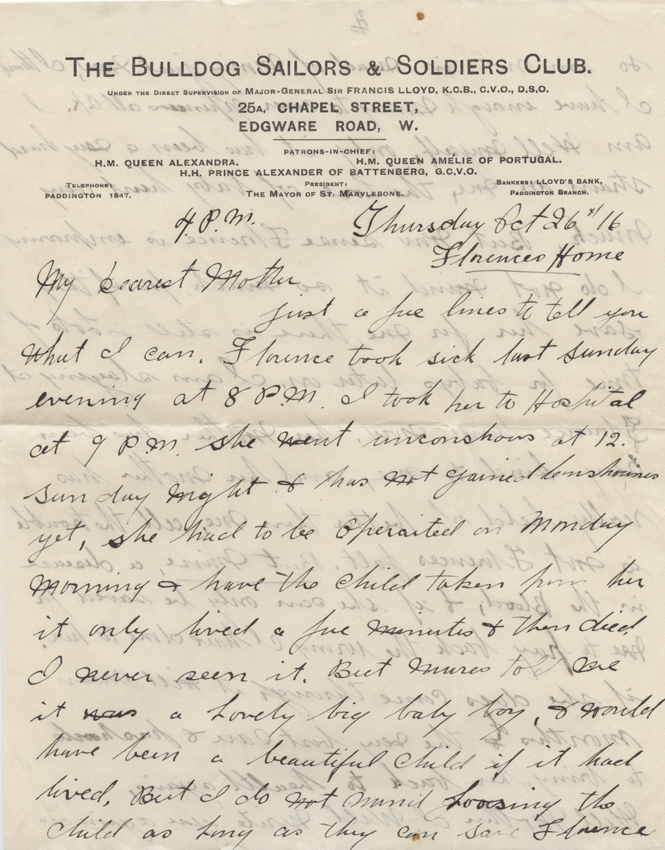 2
THE BULLDOG SAILORS & SOLDIERS CLUB.
UNDER THE DIRECT SUPERVISION OF MAJOR-GENERAL SIR FRANCIS LLOYD, K.C.B., C.V.O., D.S.O.
25A, CHAPEL STREET,
EDGWARE ROAD, W.
PATRONS-IN-CHIEF:
H.M. QUEEN ALEXANDRA. H.M. QUEEN AMÉLIE OF PORTUGAL.
H.H. PRINCE ALEXANDER OF BATTENBERG, G.C.V.O.
TELEPHONE: PADDINGTON 1847.
PRESIDENT: THE MAYOR OF ST. MARYLEBONE.
BANKERS: LLOYD'S BANK, PADDINGTON BRANCH.
4 P.M. Thursday Oct 26 /16
Florences Home
My Dearest Mother
just a fue lines to tell you
what I can. Florence took sick last Sunday
evening at 8 P.M. I took her to Hospital
at 9 P.M. she went unconshous at 12.
Sunday night & has not gained
yet, she had to be operaited on Monday
Morning & have the child taken from her
it only lived a fue minutes & then died.
I never seen it. But nurses told me
it was a lovely big baby boy, & would
have been a beautiful child if it had
lived. But I do not mind loosing the
child as long as they can save Florence